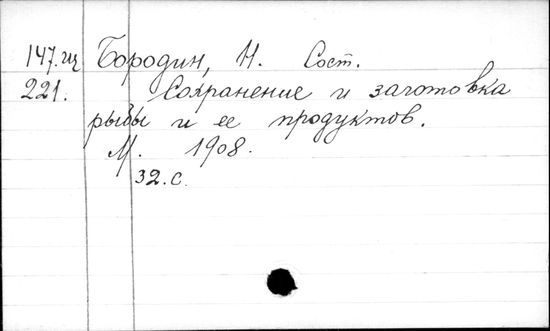 147.щ Бородин, Н. Сост.
221. Сохранение и заготовка
рыбы и ее продуктов.
М. 1908.
32.с.